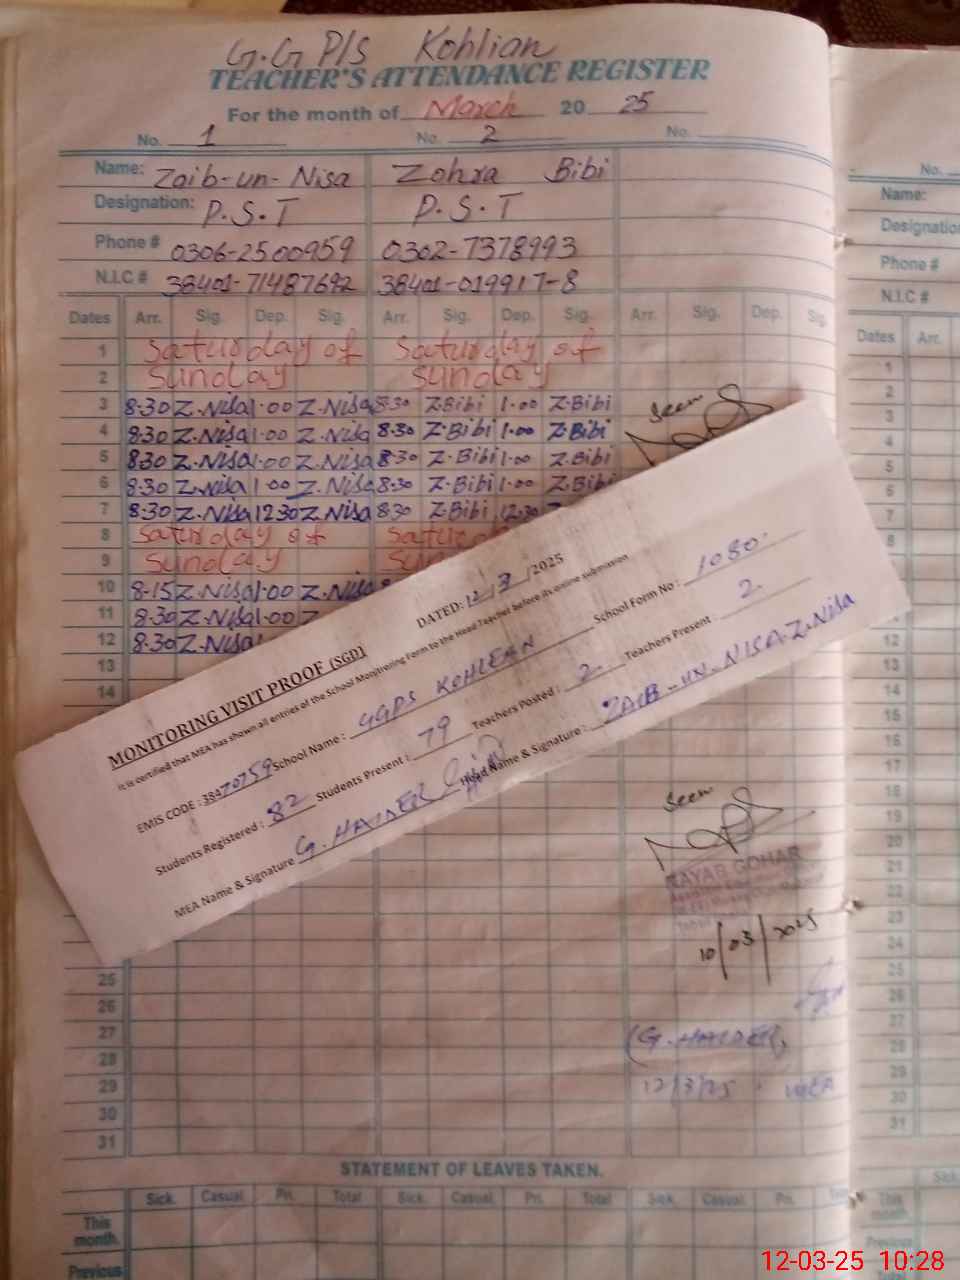 G.G P/S Kohlian
TEACHER'S ATTENDANCE REGISTER
For the month of March 20 25
No. 1 No. 2 No.
Name: Zaib-un-Nisa Zohra Bibi
Designation: P.S.T P.S.T
Phone # 0306-2500959 0302-7378993
N.I.C # 38401-71487692 38401-019917-8
Dates Arr. Sig. Dep. Sig. Arr. Sig. Dep. Sig. Arr. Sig. Dep. Sig.
1 Saturday of Saturday of
2 Sunday Sunday
3 8-30 Z.Nisa 1-00 Z.Nisa 8-30 Z.Bibi 1-00 Z.Bibi Seen
4 8-30 Z.Nisa 1-00 Z.Nisa 8-30 Z.Bibi 1-00 Z.Bibi
5 8-30 Z.Nisa 1-00 Z.Nisa 8-30 Z.Bibi 1-00 Z.Bibi
6 8-30 Z.Nisa 1-00 Z.Nisa 8-30 Z.Bibi 1-00 Z.Bibi
7 8-30 Z.Nisa 12-30 Z.Nisa 8-30 Z.Bibi 12-30
8 Saturday of
9 Sunday
10 8-15 Z.Nisa 1-00 Z.Nisa
11 8-30 Z.Nisa 1-00
12 8-30 Z.Nisa
13
14
15
16
17
18
19
20
21
22
23
24
25
26
27
28
29
30
31
MONITORING VISIT PROOF (SGD) DATED: 12/3/2025
It is certified that MEA has shown all entries of the School Monitroring Form to the Head Teacher before its online submission
EMIS CODE : 38470759 School Name : GGPS KOHLEAN School Form No : 1080
Students Registered : 82 Students Present : 79 Teachers Posted : 2 Teachers Present : 2
MEA Name & Signature G. HAIDER Head Name & Signature : ZAIB-UN-NISA Z.Nisa
Seen
10/03/2025
(G. HAIDER)
12/3/25 MEA
STATEMENT OF LEAVES TAKEN.
Sick. Casual. Pri. Total Sick. Casual. Pri. Total Sick. Casual. Pri.
This month.
Previous
No.
Name:
Designation
Phone #
N.I.C #
Dates Arr.
1
2
3
4
5
6
7
8
9
14
15
16
17
18
19
20
21
22
23
24
25
26
27
28
29
30
31
This month.
Previous
12-03-25 10:28